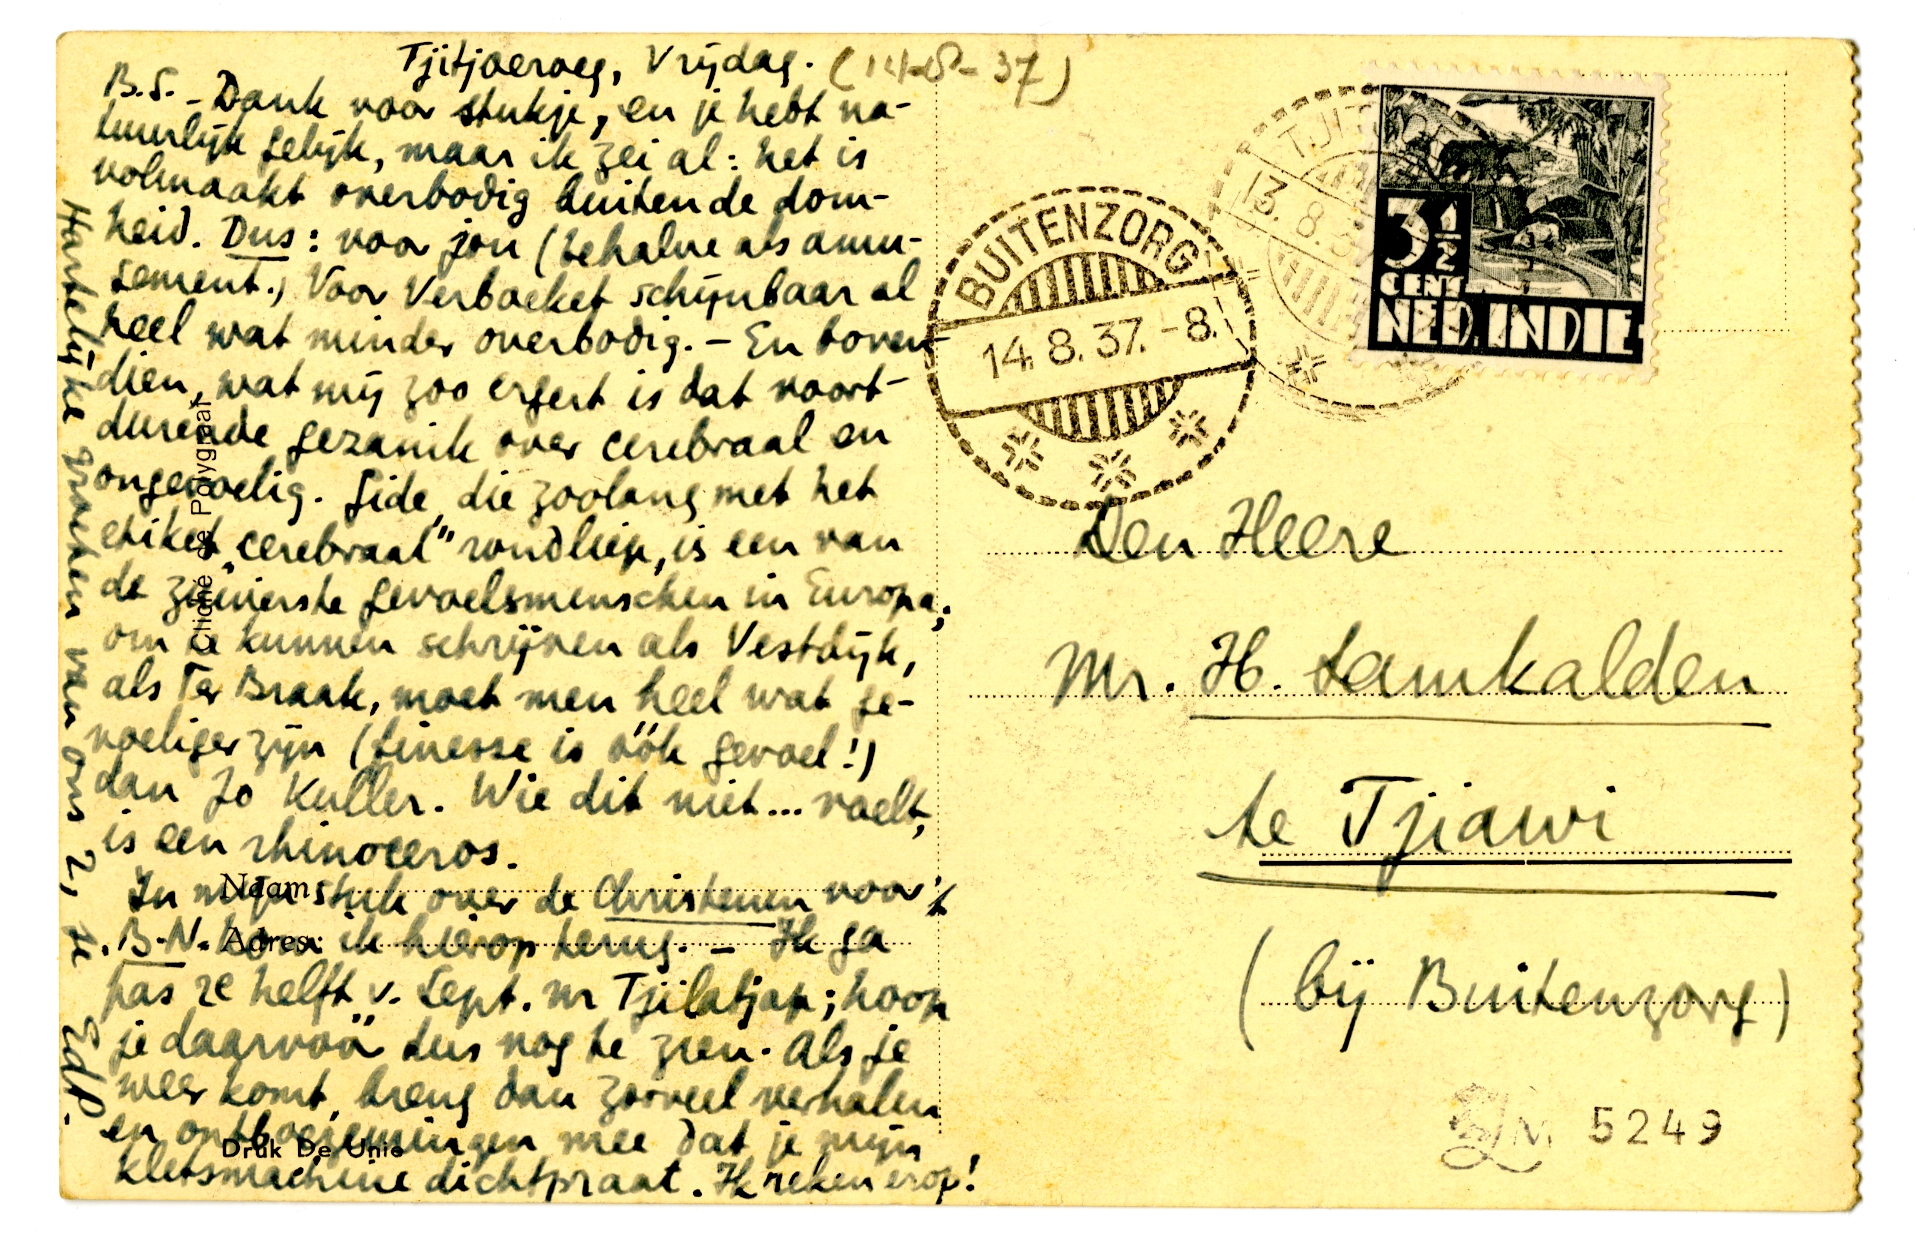 Tjitjoeroeg, Vrijdag. (14-8-37)
B.S. - Dank voor stukje, en je hebt na-
tuurlijk gelijk, maar ik zei al: het is
volmaakt overbodig buiten de dom-
heid. Dus: voor jou (behalve als amu-
sement.) Voor Verboeket schijnbaar al
heel wat minder overbodig. - En boven-
dien, wat mij zoo ergert is dat voort-
durende gezanik over cerebraal en
ongevoelig. Gide, die zoolang met het
etiket "cerebraal" rondliep, is een van
de zuiverste gevoelsmenschen in Europa;
om te kunnen schrijven als Vestdijk,
als Ter Braak, moet men heel wat ge-
voeliger zijn (finesse is óók gevoel!)
dan Jo Kuller. Wie dit niet... voelt,
is een rhinoceros.
In mijn stuk over de Christenen voor 't
B.-N. kom ik hierop terug. - Ik ga
pas 2e helft v. Sept. nr Tjilatjap; hoop
je daarvoor dus nog te zien. Als je
weer komt, breng dan zooveel verhalen
en ontboezemingen mee dat je mijn
kletsmachine dichtpraat. Ik reken erop!
Hartelijke groeten van ons 2, je EdP.
Cliché de Polygraaf
Naam:
Adres:
Druk De Unie
TJIT
13.8.3
BUITENZORG
14.8.37.-8.
3½
CENT
NED. INDIE
Den Heere
Mr. H. Samkalden
te Tjiawi
(bij Buitenzorg)
LM 5249